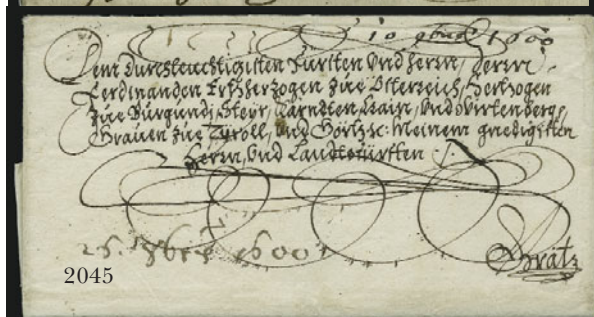 1600
Dem Durchleuchtigisten Fürsten Vnd Herrn, Herrn
Ferdinanden Ertzherzogen Züe Ossterreich, Hertzogen
Züe Burgundj, Steyr, Kärndten, Crain, Vnd Wirtenberg,
Grauen Züe Tyroll, Vnd Görtz: Meinem gnedigisten
Herrn, Vnd Landtsfürsten
1600
2045
Grätz